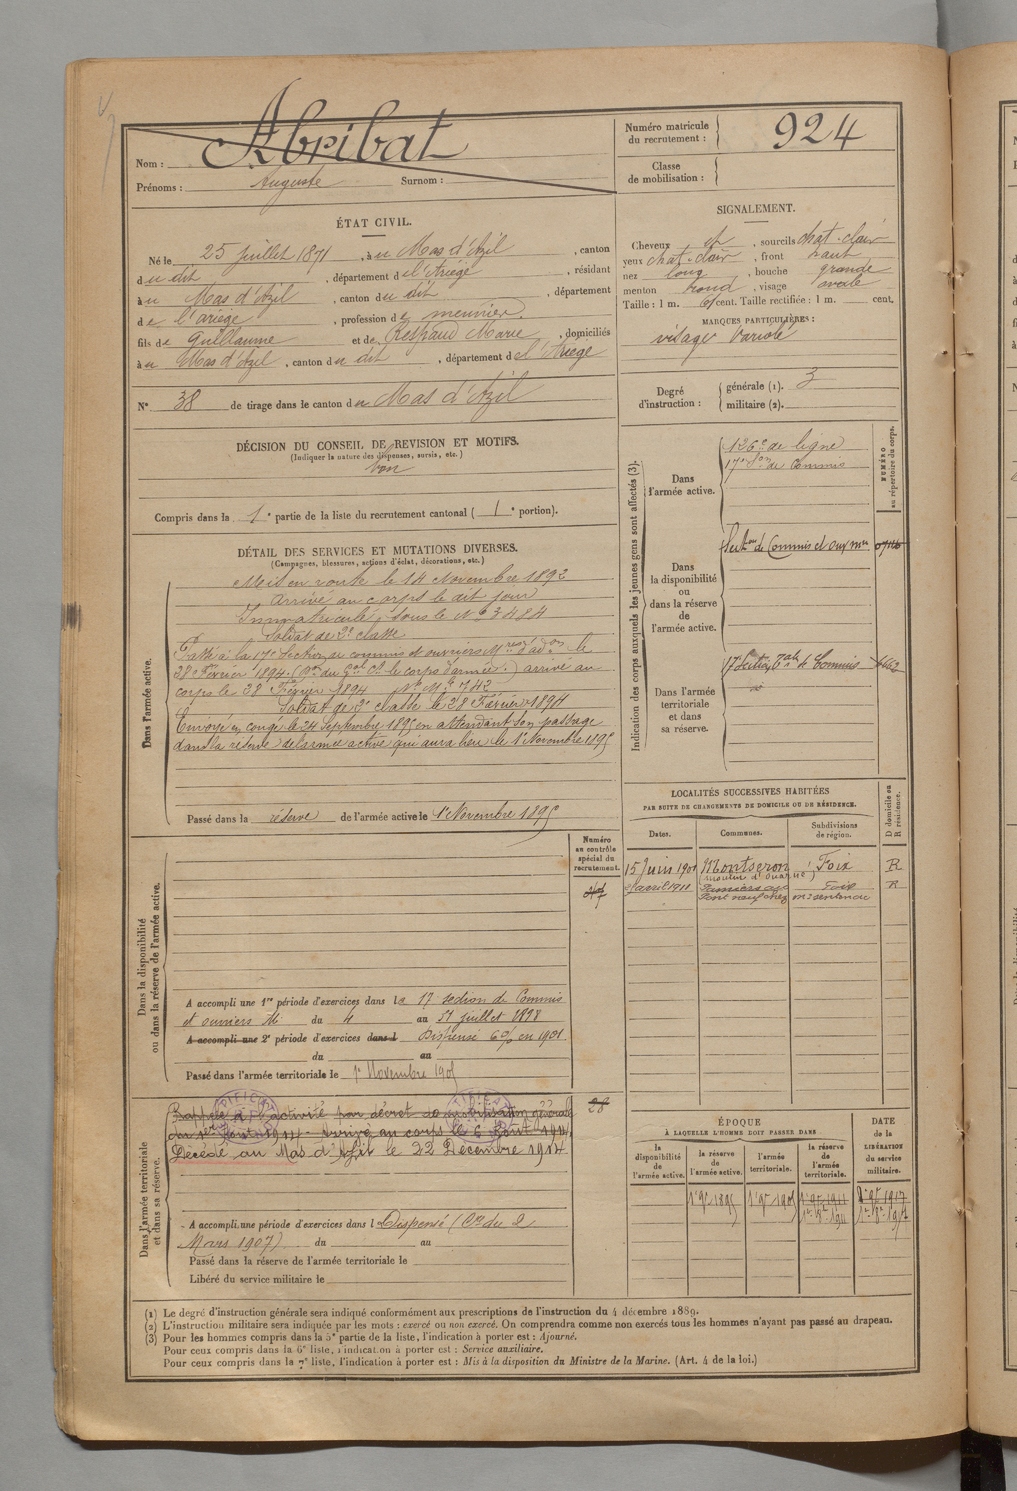 Nom : Abribat
Prénoms : Auguste Surnom :
Numéro matricule du recrutement : 924
Classe de mobilisation :
ÉTAT CIVIL.
Né le 25 juillet 1871, à u Mas d'Azil, canton
d u dit, département d e l'Ariège, résidant
à u Mas d'Azil, canton d u dit, département
d e l'ariège, profession d e meunier.
fils d e Guillaume et de Respaud Marie, domiciliés
à u Mas d'Azil, canton d u dit, département d e l'Ariège
N° 38 de tirage dans le canton d u Mas d'Azil
SIGNALEMENT.
Cheveux et, sourcils chat. clair
yeux chat. clair, front haut
nez long, bouche grande
menton rond, visage ovale
Taille : 1 m. cent. Taille rectifiée : 1 m. cent.
MARQUES PARTICULIÈRES :
visage variolé
Degré d'instruction : générale (1). 3
militaire (2).
DÉCISION DU CONSEIL DE REVISION ET MOTIFS.
(Indiquer la nature des dispenses, sursis, etc.)
bon
Compris dans la 1e partie de la liste du recrutement cantonal ( 1e portion).
Indication des corps auxquels les jeunes gens sont affectés (3).
NUMÉRO au répertoire du corps.
Dans l'armée active.
126e de ligne
17e son de Commis
Dans la disponibilité ou dans la réserve de l'armée active.
Section de Commis et ouv mre
Dans l'armée territoriale et dans sa réserve.
17e Section Tale de Commis
DÉTAIL DES SERVICES ET MUTATIONS DIVERSES.
(Campagnes, blessures, actions d'éclat, décorations, etc.)
Dans l'armée active.
Mis en route le 14 Novembre 1892
Arrivé au corps le dit jour
Immatriculé sous le No 3484
Soldat de 2e classe
Passé à la 17e Section de commis et ouvriers Mres d'adon le
28 Février 1894. (On du Gal Ct le corps d'armée.) arrivé au
corps le 28 Février 1894 No Mle 742
Soldat de 2e classe le 28 Février 1894
Envoyé en congé le 24 Septembre 1895 en attendant son passage
dans la réserve de l'armée active qui aura lieu le 1er Novembre 1895
Passé dans la réserve de l'armée active le 1er Novembre 1895
LOCALITÉS SUCCESSIVES HABITÉES
PAR SUITE DE CHANGEMENTS DE DOMICILE OU DE RÉSIDENCE.
Dates. Communes. Subdivisions de région. D domicile ou R résidence.
15 Juin 1901 Montseron Foix R
avril 1911 Pamiers au Foix R
Pont neuf chez
Numéro au contrôle spécial du recrutement.
Dans la disponibilité ou dans la réserve de l'armée active.
A accompli une 1re période d'exercices dans la 17 section de Commis
et ouvriers M. du 4 au 31 juillet 1898
A accompli une 2e période d'exercices dans l Dispensé 6 o/o en 1901
du au
Passé dans l'armée territoriale le 1er Novembre 1905
Dans l'armée territoriale et dans sa réserve.
28
Rappelé à l'activité par décret de mobilisation générale
du 1er Aout 1914 - Arrivé au corps le 6 Aout 1914.
Décédé au Mas d'Azil le 22 Décembre 1914
A accompli une période d'exercices dans l Dispensé (Cre du 2
Mars 1907) du au
Passé dans la réserve de l'armée territoriale le
Libéré du service militaire le
ÉPOQUE
À LAQUELLE L'HOMME DOIT PASSER DANS
la disponibilité de l'armée active. la réserve de l'armée active. l'armée territoriale. la réserve de l'armée territoriale.
DATE de la LIBÉRATION du service militaire.
1er 9e 1895 1er 9e 1905 1er 9e 1911
(1) Le degré d'instruction générale sera indiqué conformément aux prescriptions de l'instruction du 4 décembre 1889.
(2) L'instruction militaire sera indiquée par les mots : exercé ou non exercé. On comprendra comme non exercés tous les hommes n'ayant pas passé au drapeau.
(3) Pour les hommes compris dans la 5e partie de la liste, l'indication à porter est : Ajourné.
Pour ceux compris dans la 6e liste, l'indication à porter est : Service auxiliaire.
Pour ceux compris dans la 7e liste, l'indication à porter est : Mis à la disposition du Ministre de la Marine. (Art. 4 de la loi.)